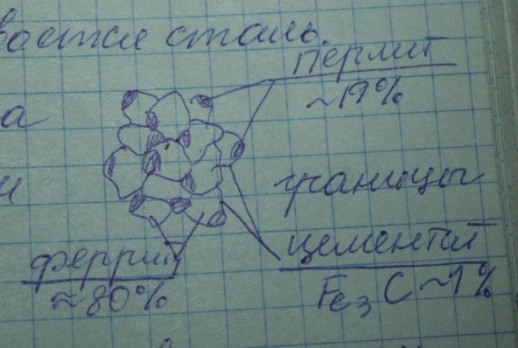 вается сталь.
перлит
~19%
а
и
границы
цементит
Fe₃C ~1%
феррит
≈80%